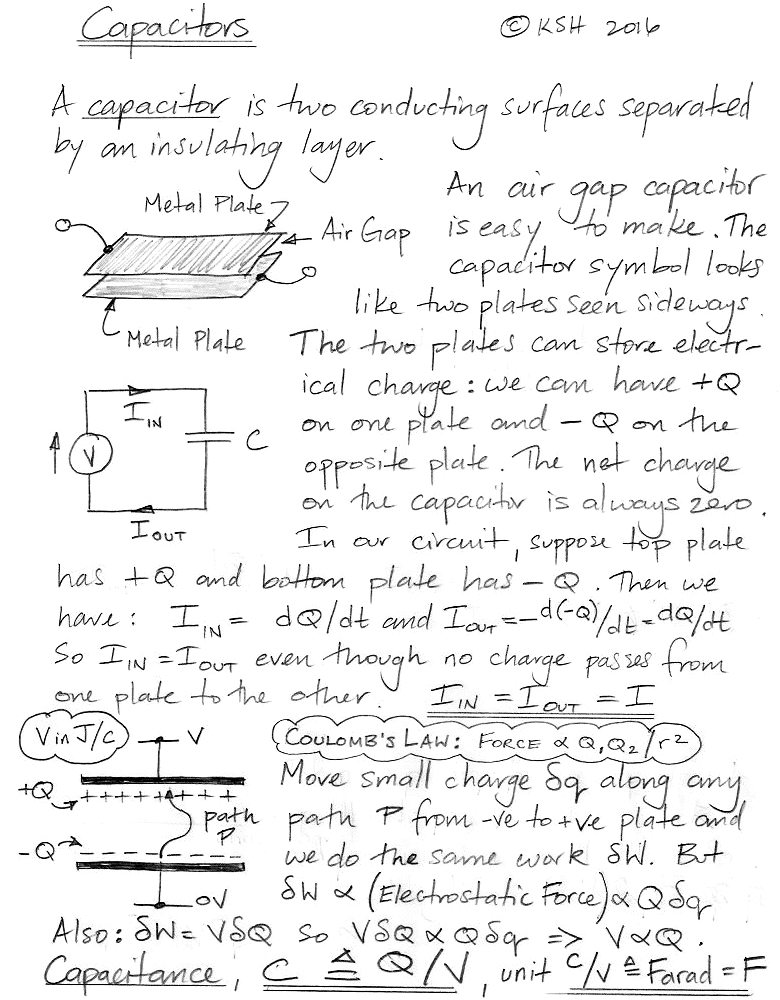 Capacitors © KSH 2016
A capacitor is two conducting surfaces separated
by an insulating layer.
Metal Plate
Air Gap
Metal Plate
An air gap capacitor
is easy to make. The
capacitor symbol looks
like two plates seen sideways.
The two plates can store electr-
ical charge: we can have +Q
on one plate and -Q on the
opposite plate. The net charge
on the capacitor is always zero.
I IN
V
C
I OUT
In our circuit, suppose top plate
has +Q and bottom plate has -Q. Then we
have: I IN = dQ/dt and I OUT = -d(-Q)/dt = dQ/dt
So I IN = I OUT even though no charge passes from
one plate to the other. I IN = I OUT = I
V in J/C
V
+Q
+ + + + + + + + +
path P
-Q
0V
COULOMB'S LAW: FORCE ∝ Q₁Q₂/r²
Move small charge δq along any
path P from -ve to +ve plate and
we do the same work δW. But
δW ∝ (Electrostatic Force) ∝ Q δq
Also: δW = VδQ so VδQ ∝ Qδq ⇒ V∝Q.
Capacitance, C ≜ Q/V, unit C/V ≜ Farad = F